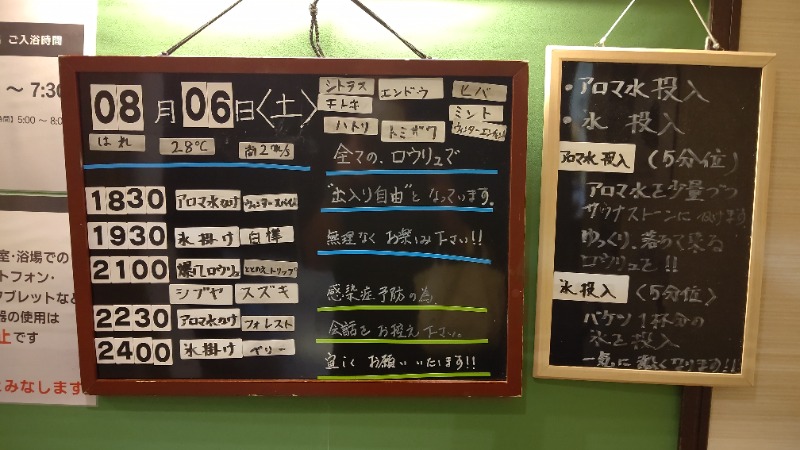 ご入浴時間
〜 7:30
5:00 〜 8:0
室・浴場での
トフォン・
タブレットなど
器の使用は
止です
とみなします
08月06日〈土〉
はれ 28℃ 南2m/s
シトラス エンドウ ヒバ
モトキ ミント
ハトリ トミザワ
全ての、ロウリュで
"出入り自由"と なっています。
無理なく お楽しみ下さい!!
感染症予防の為、
会話をお控え下さい。
宜しくお願いいたします!!
1830 アロマ水かけ
1930 氷掛け 白樺
2100 爆汗ロウリュ ととのえトリップ
シブヤ スズキ
2230 アロマ水かけ フォレスト
2400 氷掛け ベリー
・アロマ水投入
・氷 投入
アロマ水投入 (5分位)
アロマ水を少量づつ
サウナストーンにかけます
ゆっくり、落ちて来る
ロウリュを!!
氷投入 (5分位)
バケツ1杯分の
氷を投入
一気に熱くなります!!